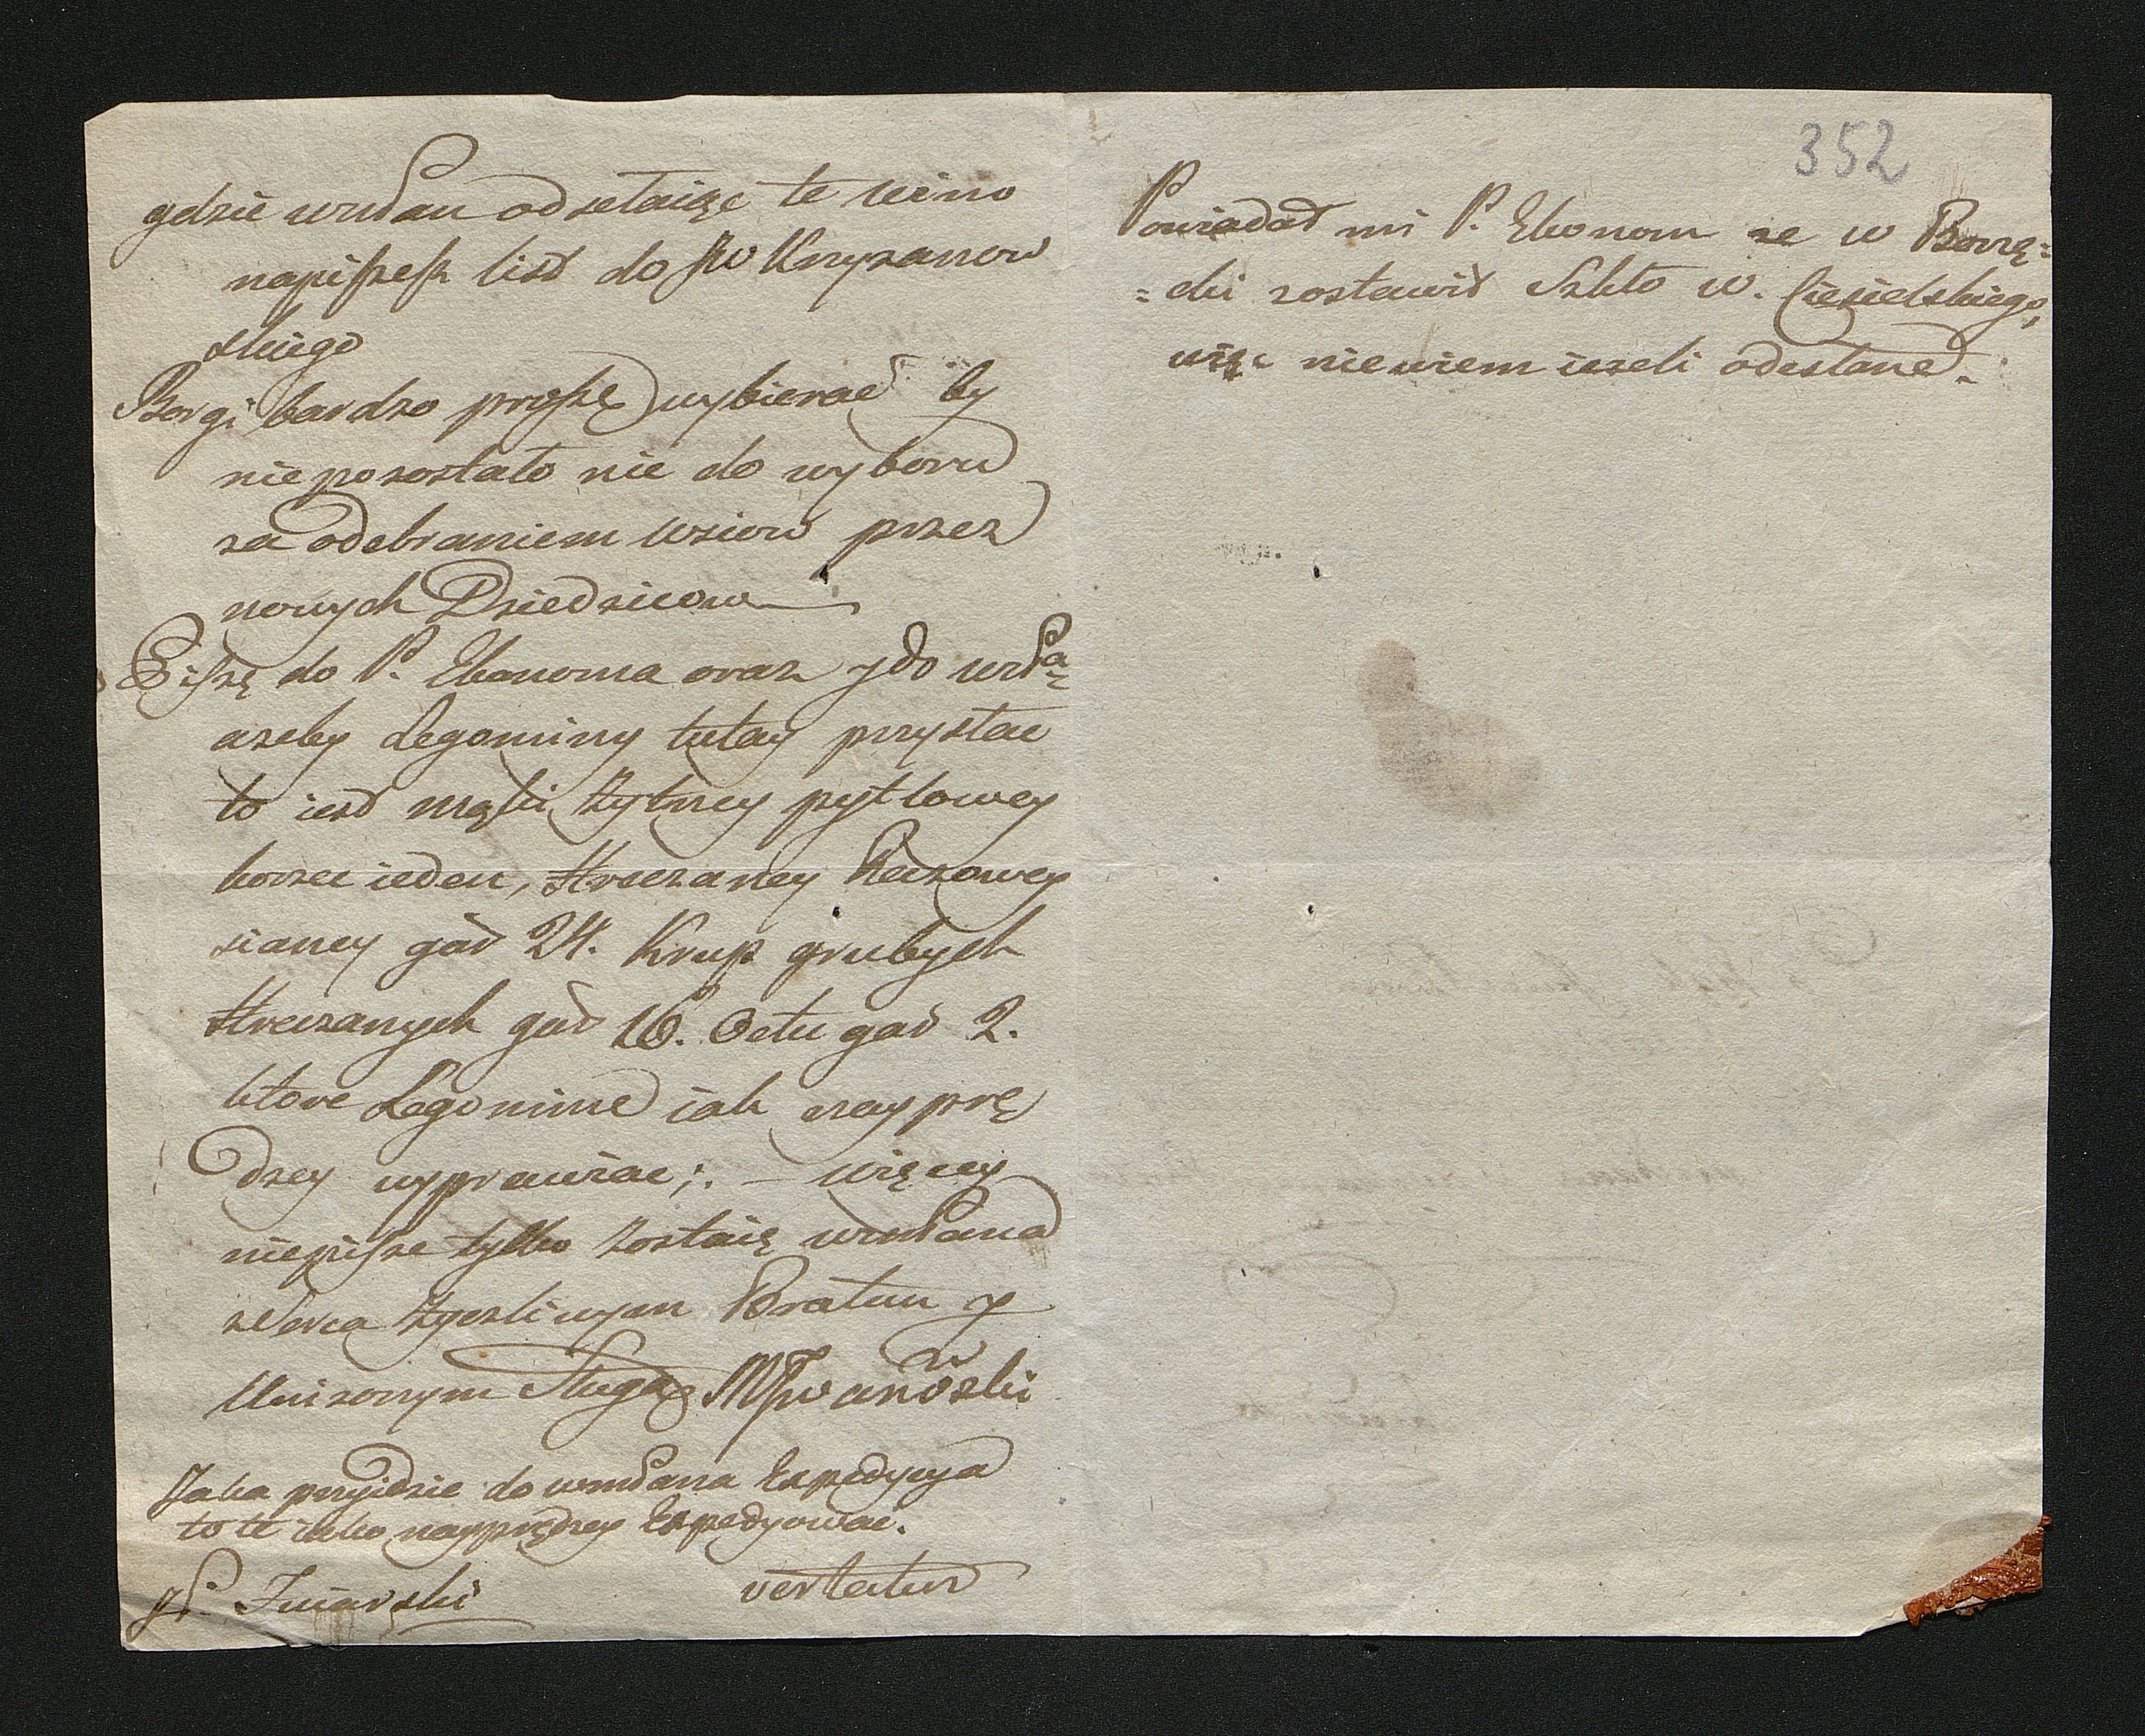 gdzie wmdan odsełaiąc te wino
napiszesz list do JW Knyszanow
skiego
Borgi bardzo proszę wybierać by
niepozostało nic do wyboru
za odebraniem wsiow przez
nowych Dziedzicow
Piszę do P. Ekonoma oraz y do wmd
azeby Legominy tutay przysłać
to iest mąki żytney pytlowey
korzec ieden, Hreczaney Razowey
sianey gar 24. Krup grubych
Hreczanych gar 16. Octu gar 2.
ktore Legomine iak nayprę
dzey wyprawiac; – więcey
niepisze tylko zostaię wmdana
z Serca życzliwym Bratem y
Unizonym Sługą MIwański
Jaka przyidzie do wmdana Expedycya
to te iako nayprędzey Expedyowac.
vertatur
352
Powiadał mi P. Ekonom ze w Borzę=
=cki zostawił Szkło w. Ciesielskiego,
więc niewiem iezeli odesłane.